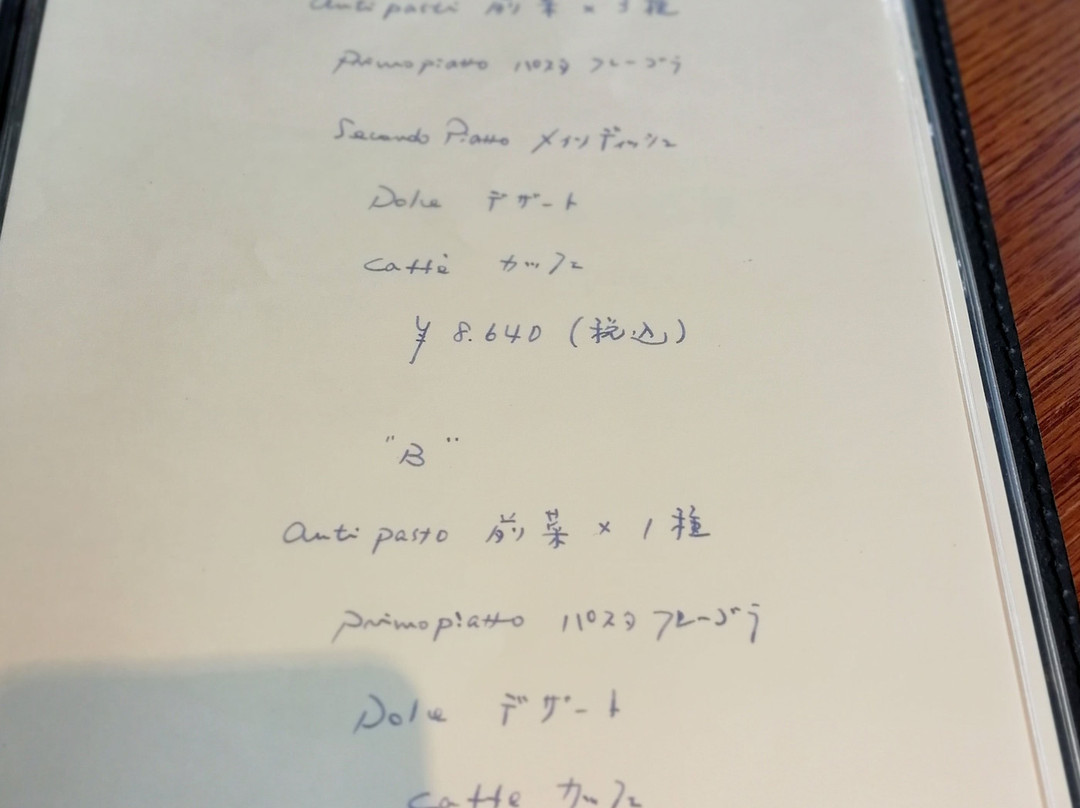 Antipasti 前菜 × 3種
Primopiatto パスタ フレーゴラ
Secondo Piatto メインディッシュ
Dolce デザート
Caffè カッフェ
¥ 8.640 (税込)
"B"
Antipasto 前菜 × 1種
primopiatto パスタ フレーゴラ
Dolce デザート
Caffe カッフェ